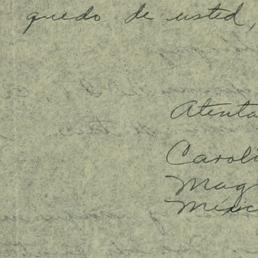 quedo de usted,
Atenta
Caroli
Mag
Mexic